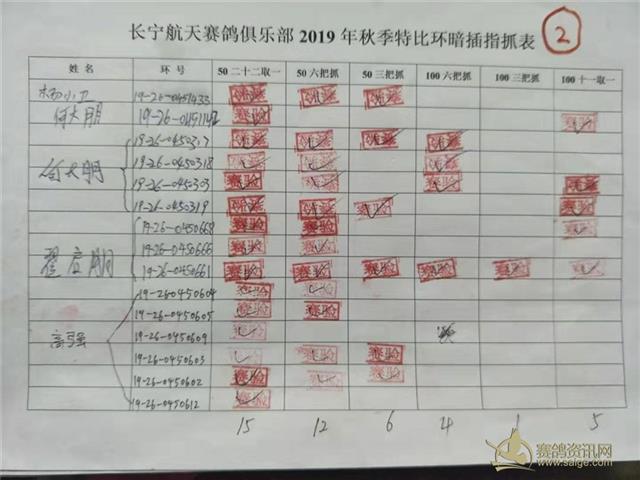 长宁航天赛鸽俱乐部2019年秋季特比环暗插指抓表 2
姓名 环号 50二十二取一 50六把抓 50三把抓 100六把抓 100三把抓 100十一取一
杨小卫 19-26-0451433
何大朋 19-26-0451142 赛验
何大朋 19-26-0450317
19-26-0450318
19-26-0450303 赛验 赛验
19-26-0450319
19-26-0450668 赛验 赛验
19-26-0450666
19-26-0450661 赛验 赛验 赛验 赛验 赛验
19-26-0450604 赛验
19-26-0450605 赛验 赛验
高强 19-26-0450609
19-26-0450603 赛验
19-26-0450602 赛验
19-26-0450612 赛验
15 12 6 4 1 5
赛鸽资讯网
www.saige.com